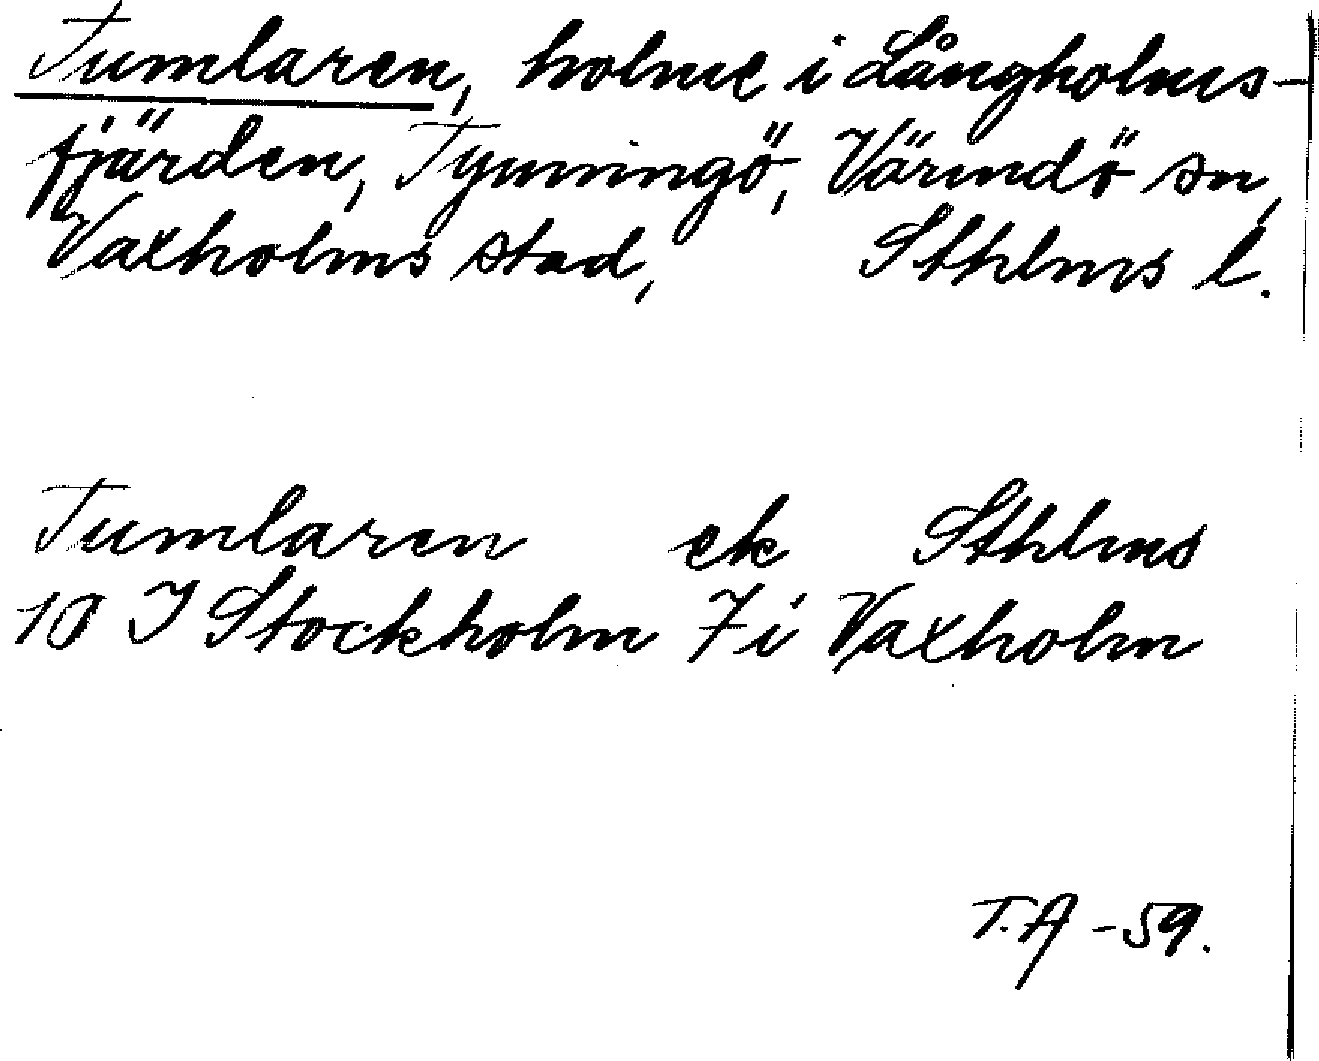 Tumlaren, holme i Långholms-
fjärden, Tynningö, Värmdö sn,
Vaxholms stad, Sthlms l.
Tumlaren ek Sthlms
10 I Stockholm 7 i Vaxholm
T.A -59.